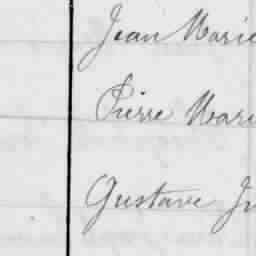 Jean Marie
Pierre Mari
Gustave